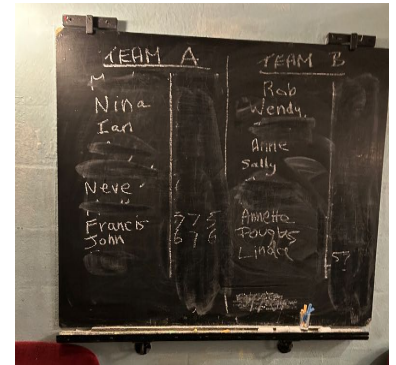 TEAM A
M
Nina
Ian
Neve
Francis 5 7 5
John 6 1 6
TEAM B
Rob
Wendy
Anne
Sally
Annetta
Douglas
Linda
57